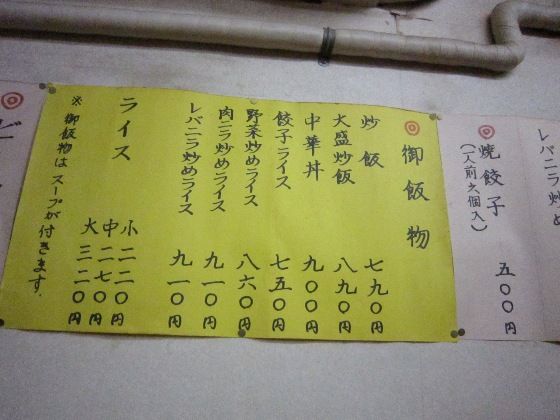 レバニラ炒め
◎焼餃子 五〇〇円
(一人前六個入)
◎御飯物
炒飯 七九〇円
大盛炒飯 八九〇円
中華丼 九〇〇円
餃子ライス 七五〇円
野菜炒めライス 八六〇円
肉ニラ炒めライス 九一〇円
レバニラ炒めライス 九一〇円
ライス 小 二二〇円
中 二七〇円
大 三二〇円
※御飯物はスープが付きます.
◎ビ